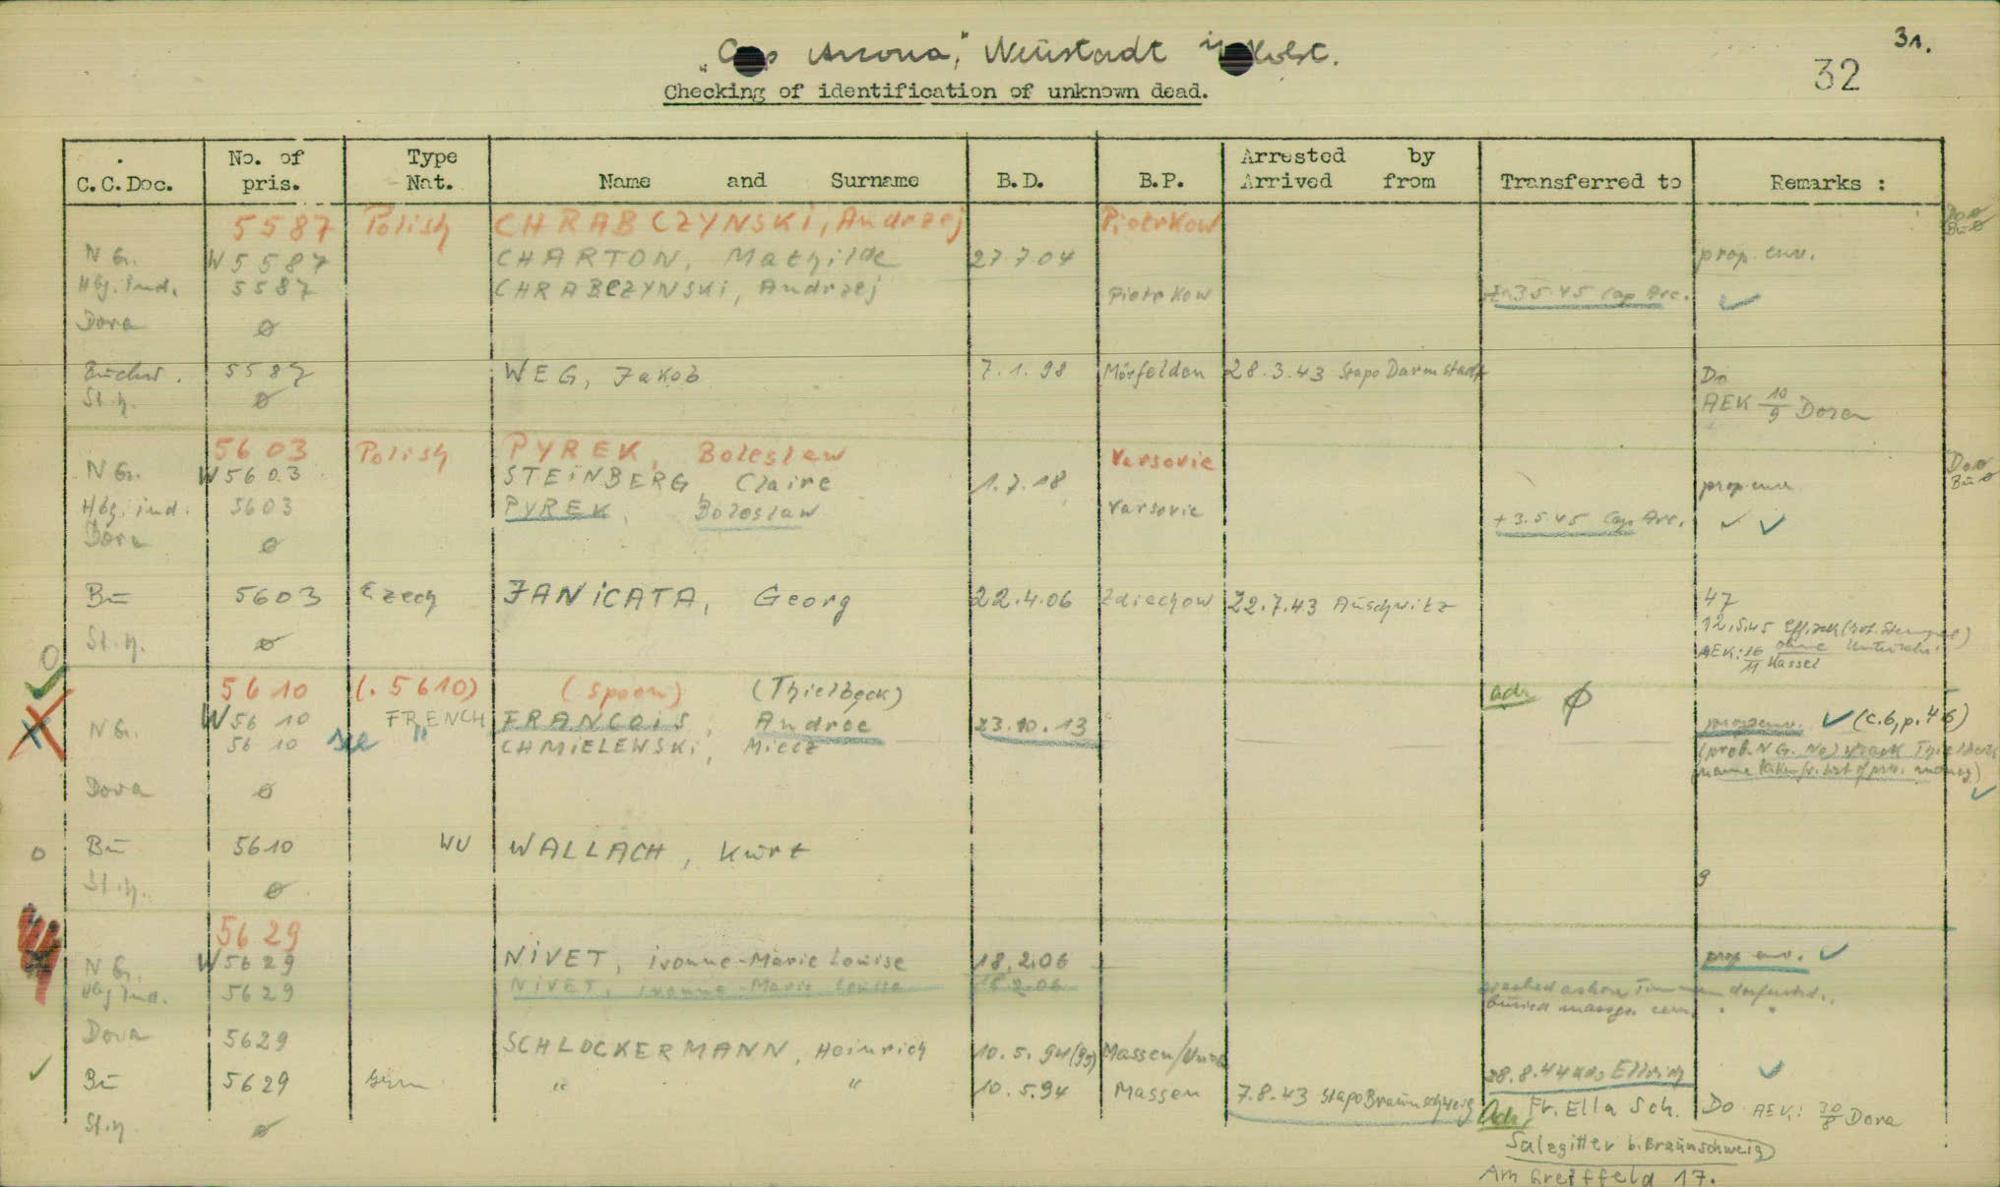 "Cap Arcona," Neustadt in Holst.
31.
32
Checking of identification of unknown dead.
C.C.Doc. No. of pris. Type Nat. Name and Surname B.D. B.P. Arrested by Arrived from Transferred to Remarks :
5587 Polish CHRABCZYNSKI, Andrzej Piotrkow
N G. W5587 CHARTON, Mathilde 27 7 04 prop. env.
Hbg. ind. 5587 CHRABCZYNSKI, Andrzej Piotrkow 3 5 45 Cap Arc. ✓
Dora ø
Buchw. 5587 WEG, Jakob 7.1.98 Mörfelden 28.3.43 Stapo Darmstadt Do
St.h. ø AEK 10/9 Dora
5603 Polish PYREK, Boleslaw Varsovie
N G. W5603 STEINBERG Claire 1.7.18 prop env.
Hbg. ind. 5603 PYREK, Boleslaw Varsovie + 3.5 45 Cap. Arc. ✓ ✓
Dora ø
Bu 5603 Czech JANICATA, Georg 22.4.06 Zdiechow 22.7.43 Auschwitz 47
12.5.45 Eff. (rot. Stempel)
St.h. ø AEK: 16/11 Kassel ohne Unterschr.
5610 (. 5610) (spoon) (Thielbeck) adr ø
N G. W5610 FRENCH FRANCOIS, Andree 23.10.13 prop env. ✓ (C.6, p.46)
5610 see " CHMIELEWSKI, Miecz (prob. N G. No) wrack Thielbeck
(name taken fr. list of pris. money) ✓
Dora ø
Bu 5610 WU WALLACH, Kurt
St.h. ø 9
5629
N G. W5629 NIVET, Ivonne-Marie Louise 18.2.06 prop env. ✓
Hbg ind. 5629 NIVET, Ivonne-Marie Louise 18.2.06 washed ashore
buried
Dora 5629 SCHLOCKERMANN, Heinrich 10.5.94 (95) Massen/Unna
28.8.44 ans Ellrich ✓
Bu 5629 Germ " " 10.5.94 Massen 7.8.43 Stapo Braunschweig
Adr. Fr. Ella Sch. Do AEK: 30/8 Dora
St.h. ø
Salzgitter b. Braunschweig
Am Greiffeld 17.